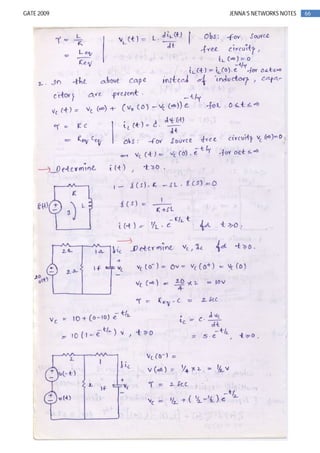 GATE 2009 JENNA'S NETWORKS NOTES 66
τ = L/R
= Leq/Req
vL(t) = L. diL(t)/dt
Obs: for source free circuits, iL(∞)=0
iL(t) = iL(0).e^-t/τ for 0≤t≤∞
2. In the above case instead of inductors, capacitors are present.
vc(t) = vc(∞) + (vc(0) - vc(∞)) e^-t/τ for 0≤t≤∞
τ = RC
= Req Ceq
ic(t) = C. dvc(t)/dt
Obs: for source free circuits vc(∞)=0
⇒ vc(t) = vc(0).e^-t/τ for 0≤t≤∞
→ Determine i(t), t≥0.
R
L
δ(t)
1 - I(s).R - sL.I(s)=0
I(s) = 1/R+sL
i(t) = 1/L. e^-R/L t for t≥0.
→ Determine vc, ic for t≥0.
2Ω 1Ω ic
20u(t) 2Ω 1F + vc -
vc(0-) = 0V = vc(0+) = vc(0)
vc(∞) = 20/4 x 2 = 10V
τ = Req.C = 2 sec
vc = 10 + (0-10) e^-t/2
= 10 (1-e^-t/2) v, t≥0
ic = C. dvc/dt
= 5.e^-t/2, t≥0.
2 1 ic
u(-t) 2 1F + vc -
u(t)
vc(0-) =
v(∞) = 1/4 x 2 = 1/2 v
τ = 2 sec
vc = 1/2 + (1/2 - 1/2) e^-t/2